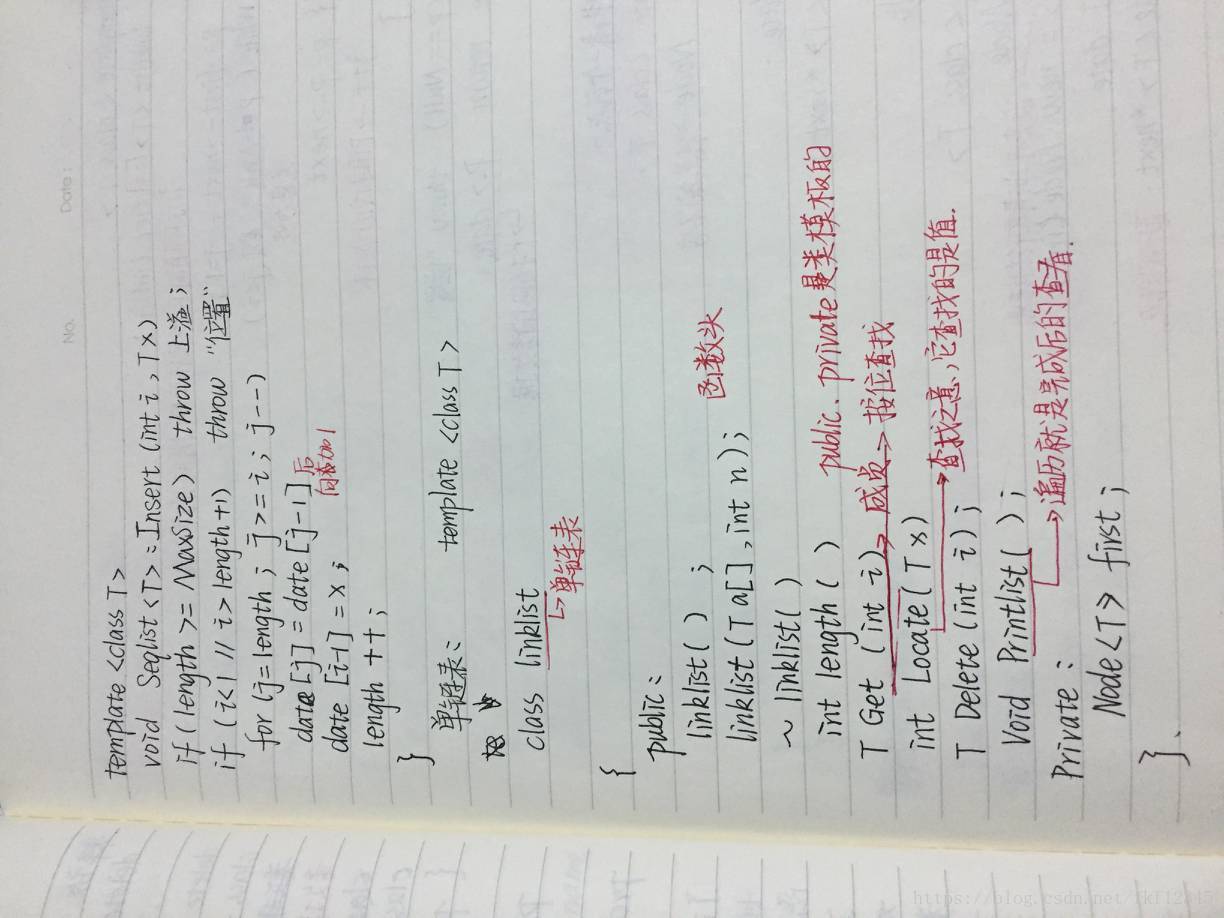 No. Date:
template <class T>
void Seqlist<T>:Insert (int i, Tx)
if (length >= MaxSize) throw 上溢;
if (i<1 // i>length+1) throw "位置"
for (j=length ; j>=i; j--)
date[j] = date[j-1] 后
date [i-1] = x; 向者加1
length ++;
}
单链表: template <class T>
class linklist
↳单链表
{
public:
linklist( ) ;
函数头
linklist(T a[], int n);
~ linklist( )
int length ( ) public. private是类模板的
T Get (int i)→ 成员→ 按位查找
int Locate(T x)
→查找之意,它查找的是值.
T Delete(int i);
Void Printlist( );
→遍历就是完成后的查看.
Private:
Node<T> first;
}.